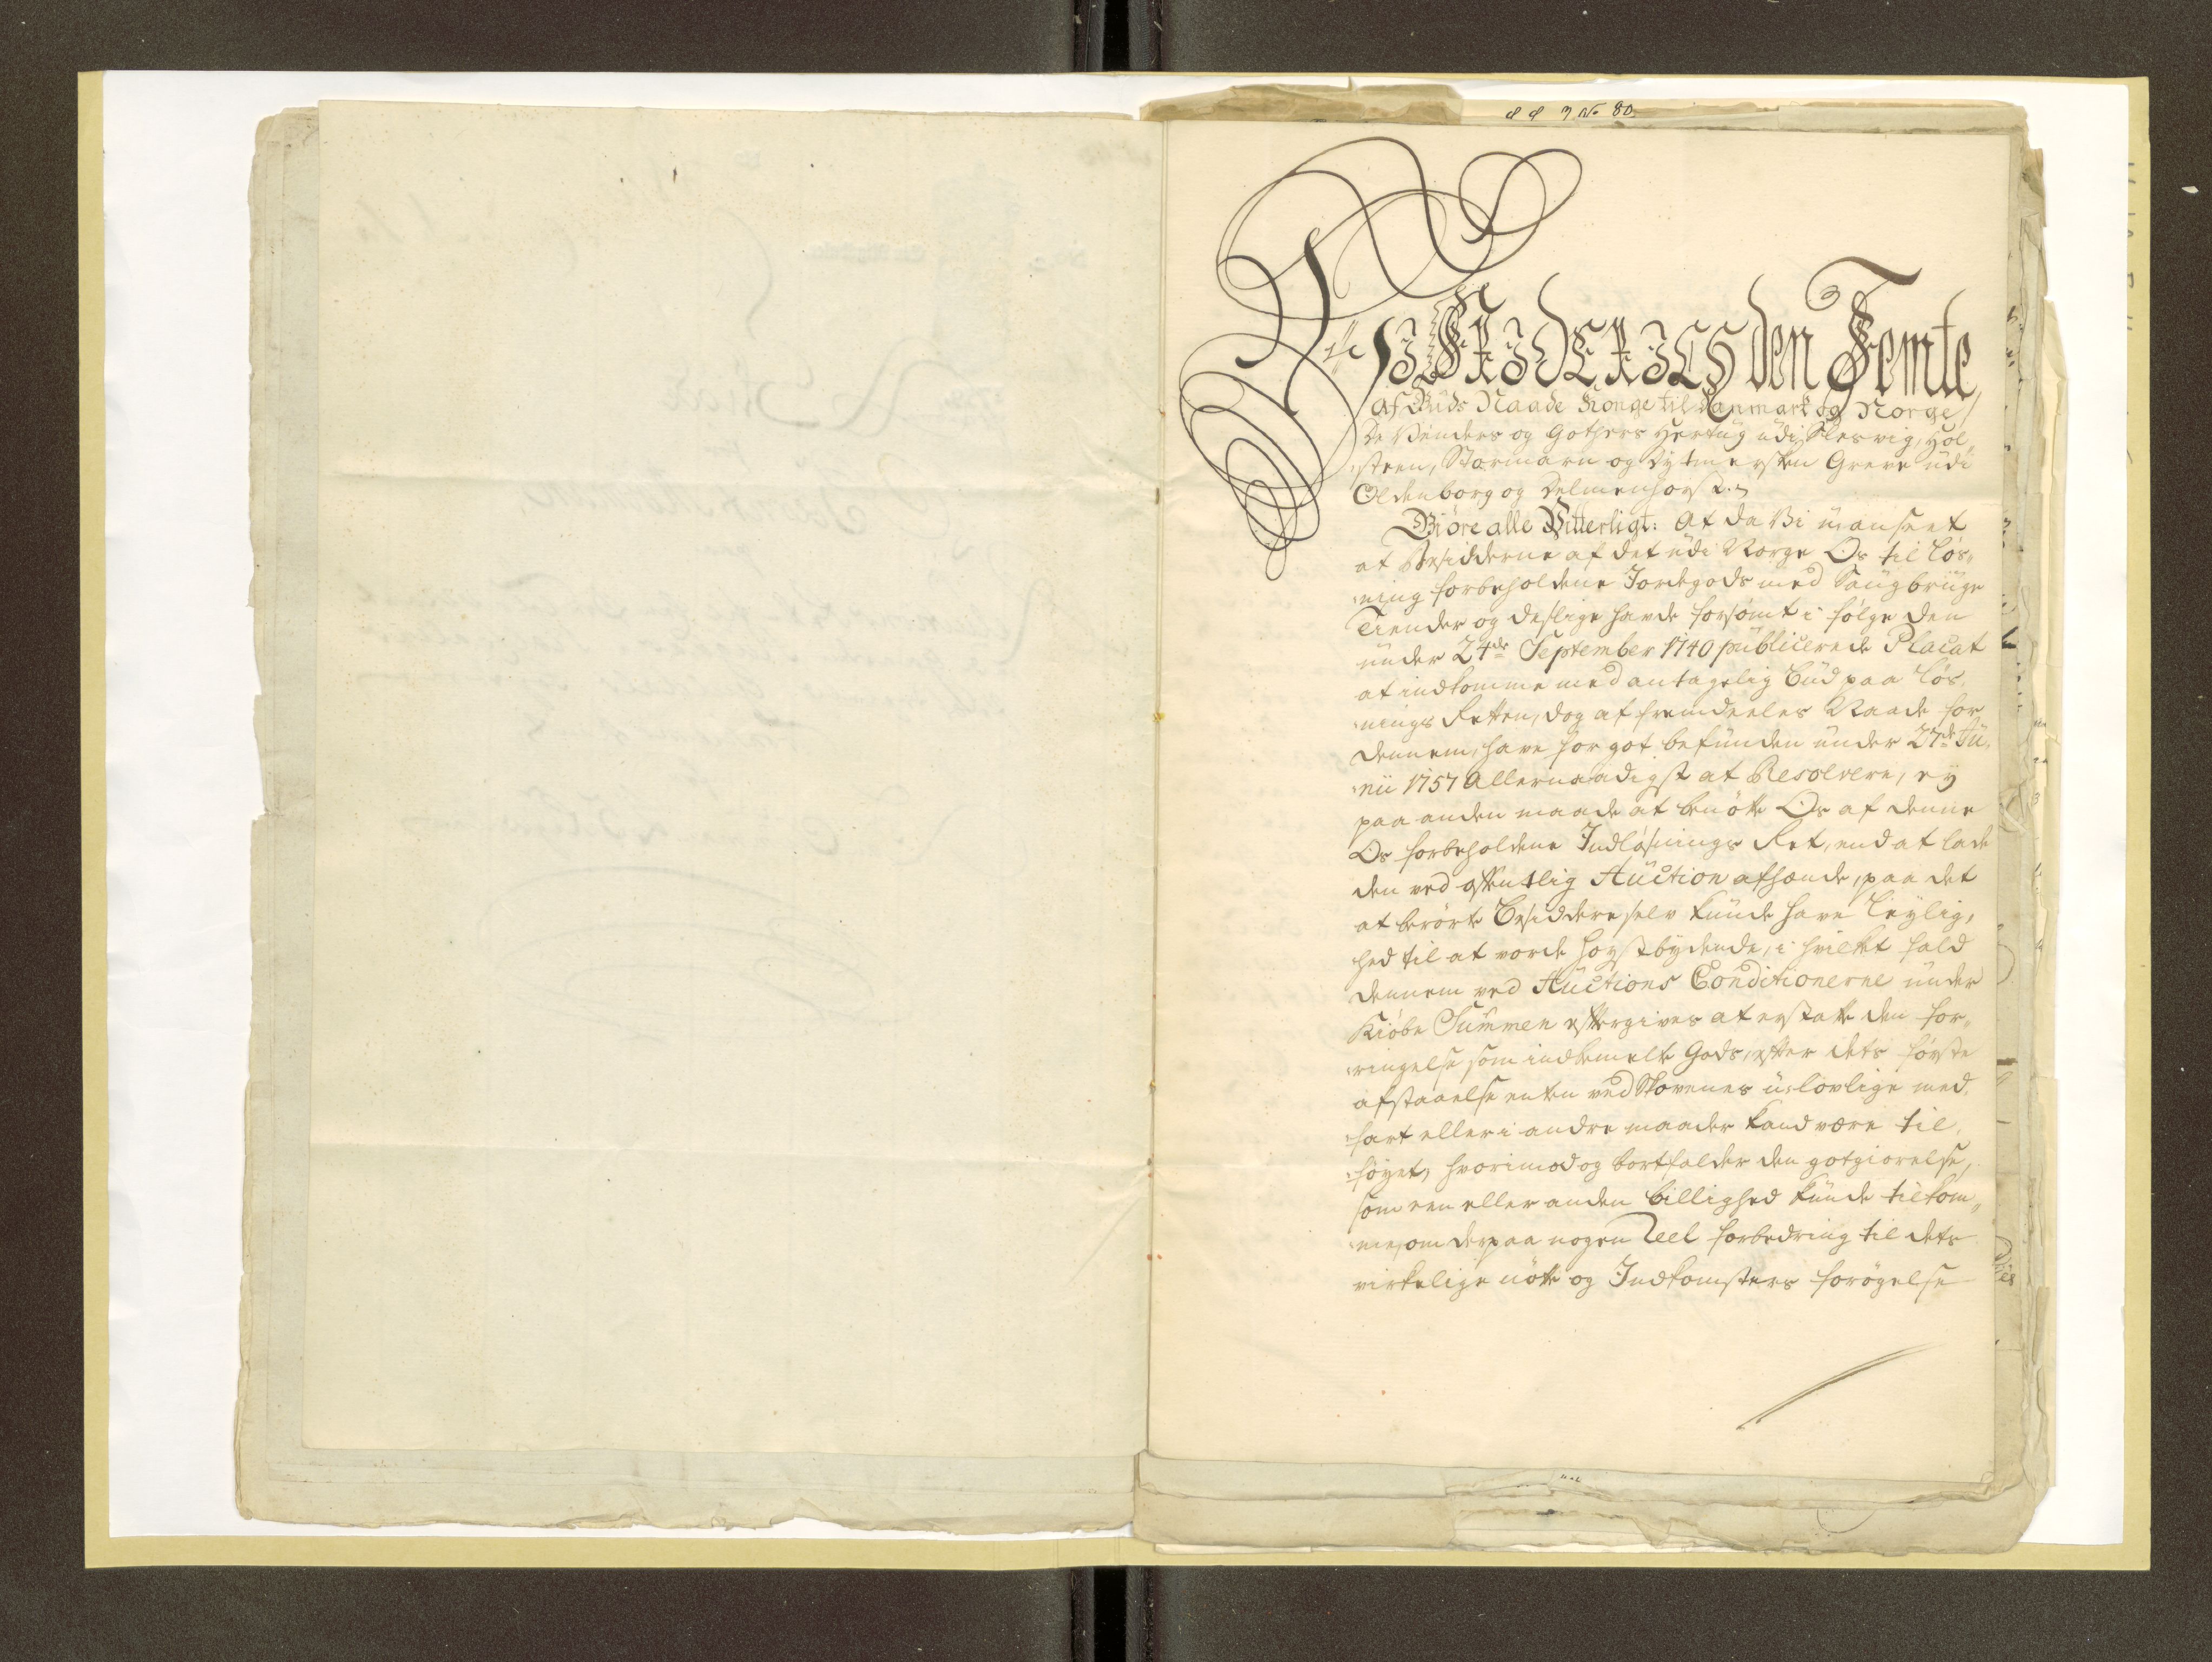 Nº 80
Wi FRIDERICH den Femte,
Af Guds Naade Konge til Danmark og Norge,
De Venders og Gothers Hertug udi Slesvig, Hol„
„steen, Stormarn og Dytmersken Greve udi
Oldenborg og Delmenhorst
Giøre alle Vitterligt: At da Vi uanseet
at Besidderne af det udi Norge Os til løs„
„ning forbeholdene Jordegods med Saugbruge
Tiender og deslige havde forsømt i følge den
under 24de September 1740 publicerede Placat
at indkomme med antagelig Bud paa løs„
„nings Retten, dog af fremdeeles Naade for
dennem, have for got befunden under 27de Ju„
„nii 1757 Allernaadigst at Resolvere, ey
paa anden maade at benøtte Os af denne
Os forbeholdene Indløsnings Ret, end at lade
den ved offentlig Auction afhænde, paa det
at berørte Besiddere selv kunde have leylig„
hed til at vorde høystbydende, i hvilket fald
dennem ved Auctions Conditionerne under
Kiøbe Summen eftergives at erstatte den for„
„ringelse som indbemelte Gods, efter dets første
afstaaelse enten ved Skovenes u-lovlige med„
„fart eller i andre maader kand være til„
„føyet, hvorimod og bortfalder den gotgiørelse,
som een eller anden billighed kunde tilkom„
„me, om derpaa nogen Reel forbedring til dets
virkelige nøtte og Indkomsters forøgelse